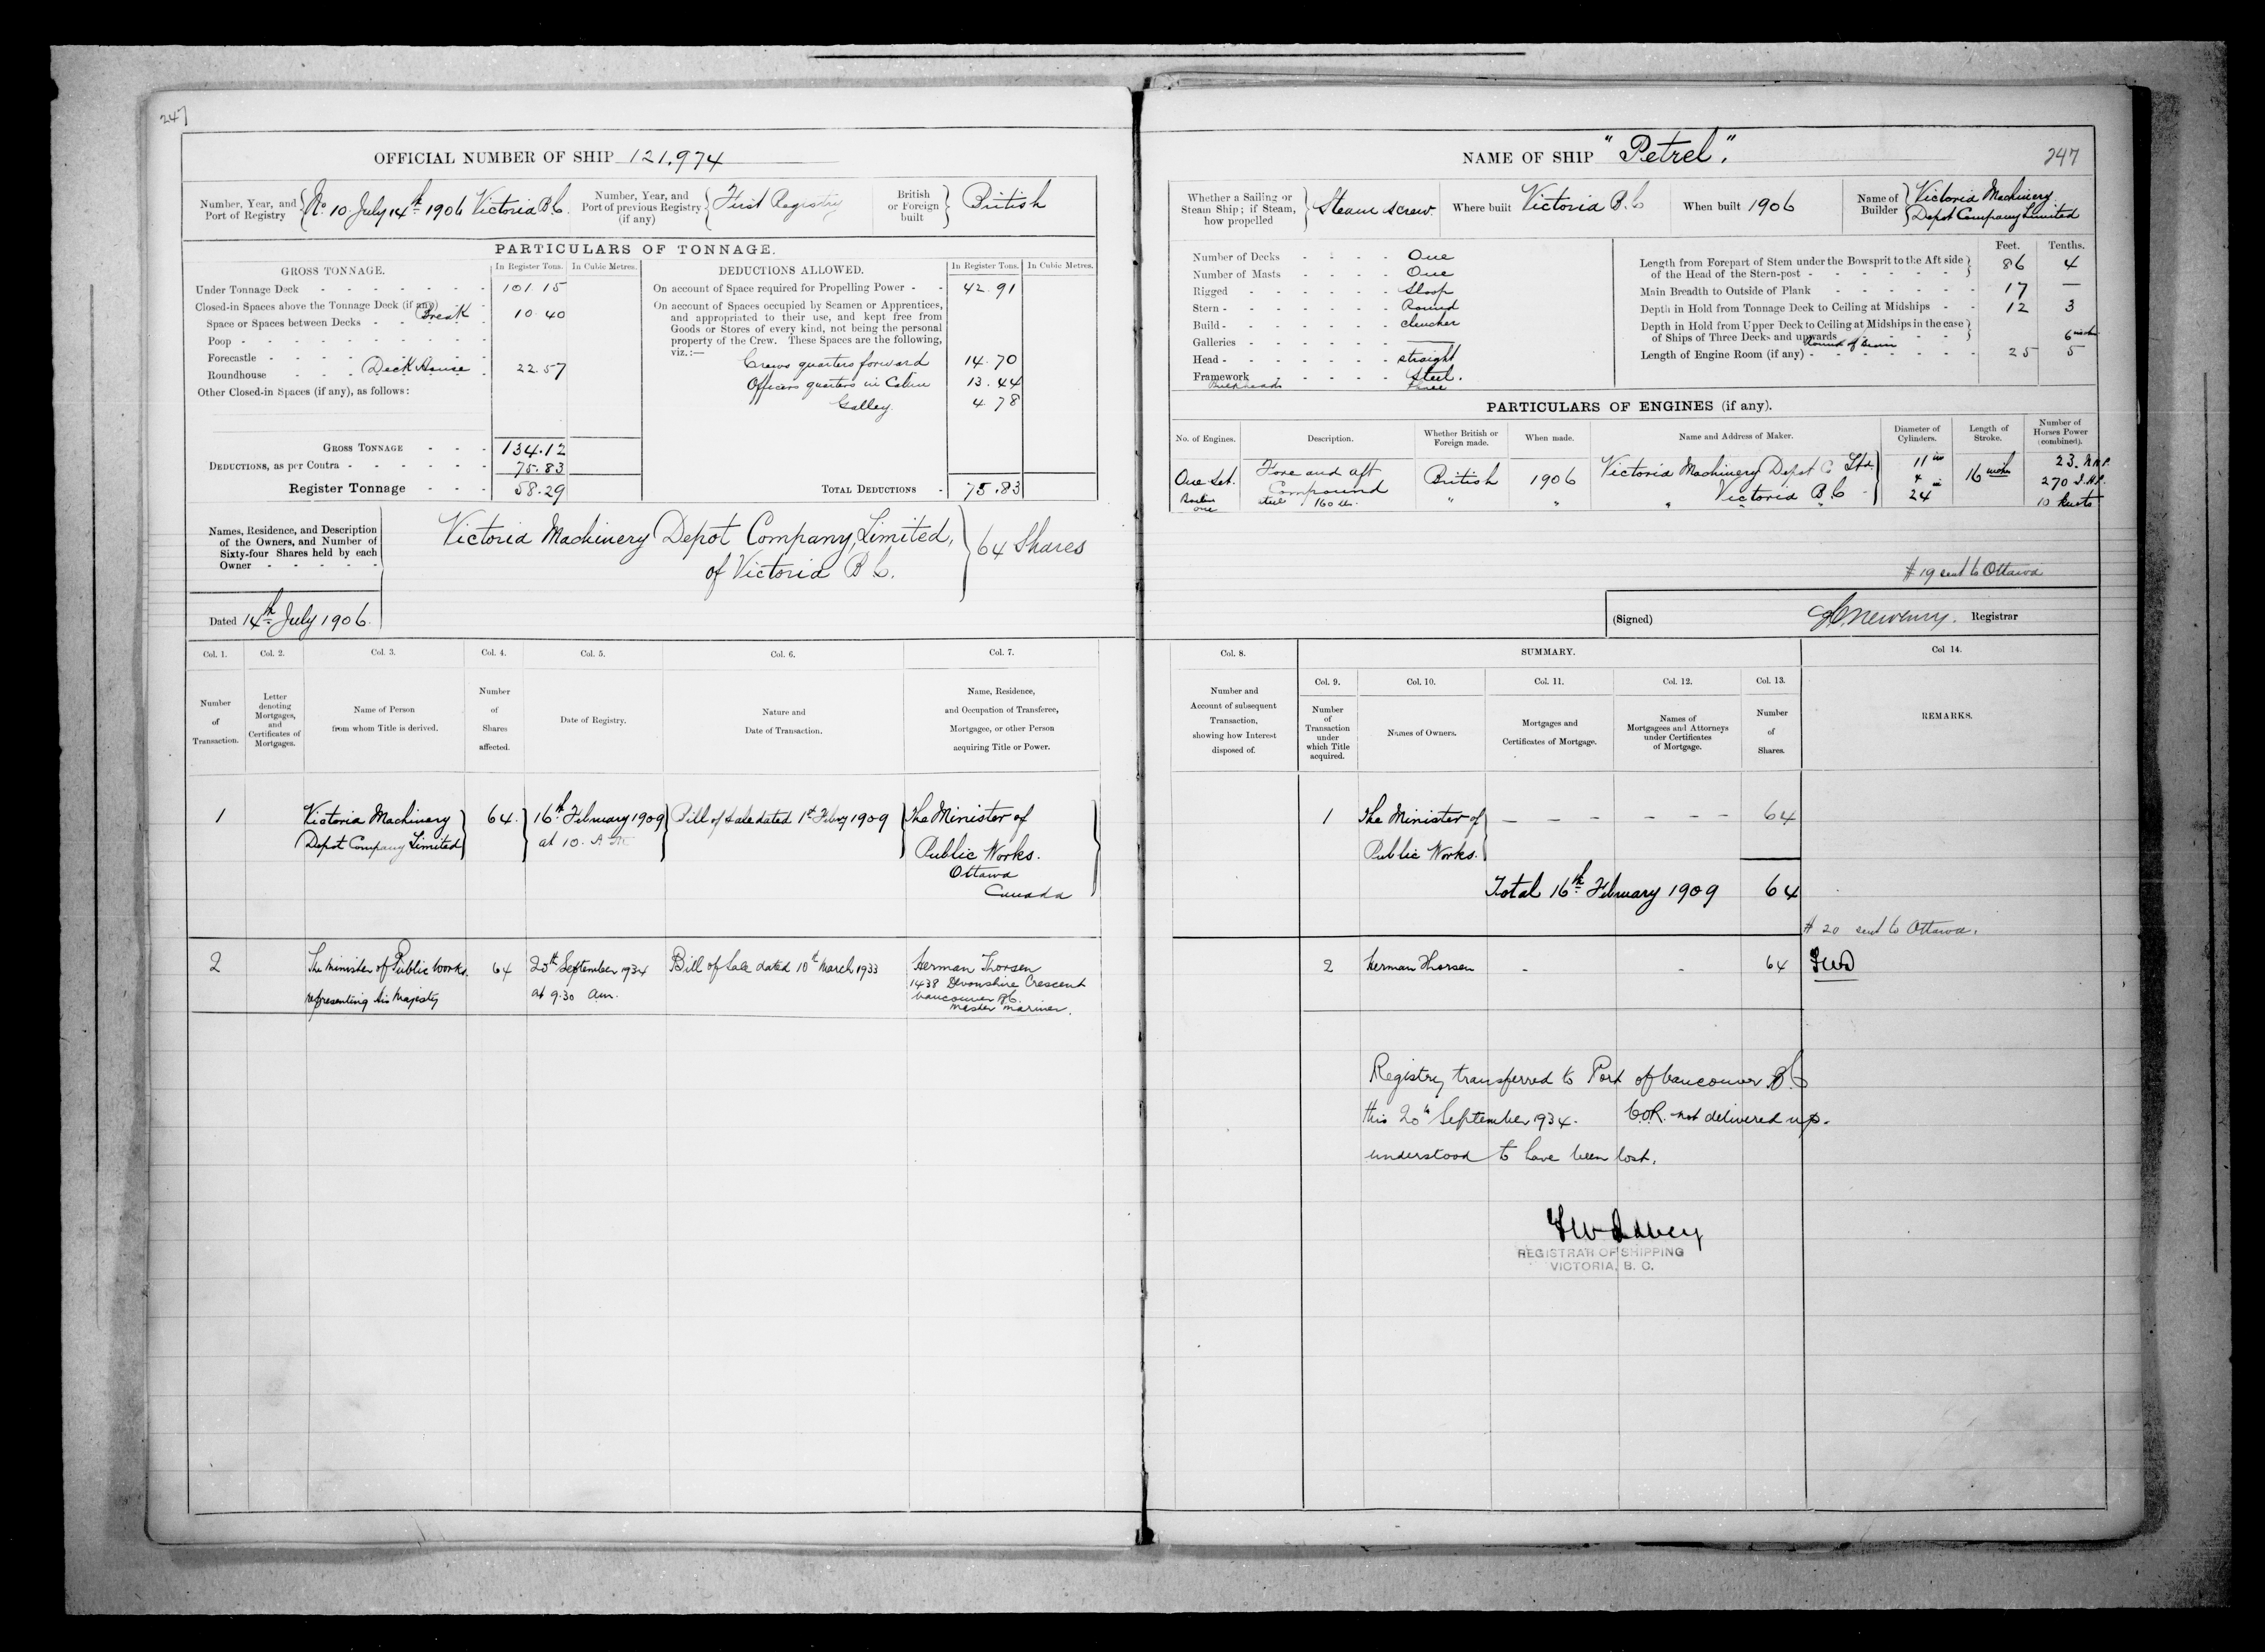 247
OFFICIAL NUMBER OF SHIP 121,974
Number, Year, and Port of Registry No 10 July 14th 1906 Victoria B.C.
Number, Year, and Port of previous Registry (if any) First Registry
British or Foreign built British
PARTICULARS OF TONNAGE.
GROSS TONNAGE. In Register Tons. In Cubic Metres.
Under Tonnage Deck - - - - - - 101.15
Closed-in Spaces above the Tonnage Deck (if any)
Break
Space or Spaces between Decks - - - - 10.40
Poop - - - - - - - -
Forecastle - - - - - - -
Roundhouse - - - Deck House - 22.57
Other Closed-in Spaces (if any), as follows:
GROSS TONNAGE - - - 134.12
DEDUCTIONS, as per Contra - - - - - - 75.83
Register Tonnage - - - 58.29
DEDUCTIONS ALLOWED. In Register Tons. In Cubic Metres.
On account of Space required for Propelling Power - - 42.91
On account of Spaces occupied by Seamen or Apprentices,
and appropriated to their use, and kept free from
Goods or Stores of every kind, not being the personal
property of the Crew. These Spaces are the following,
viz.:—
Crews quarters forward 14.70
Officers quarters in Cabin 13.44
Galley 4.78
TOTAL DEDUCTIONS - 75.83
Names, Residence, and Description
of the Owners, and Number of
Sixty-four Shares held by each
Owner - - - - -
Victoria Machinery Depot Company, Limited,
of Victoria B C.
64 Shares
Dated 14th July 1906
Col. 1. Col. 2. Col. 3. Col. 4. Col. 5. Col. 6. Col. 7.
Number of Transaction.
Letter denoting Mortgages, and Certificates of Mortgages.
Name of Person from whom Title is derived.
Number of Shares affected.
Date of Registry.
Nature and Date of Transaction.
Name, Residence, and Occupation of Transferee, Mortgagee, or other Person acquiring Title or Power.
1 Victoria Machinery 64. 16th February 1909 Bill of Sale dated 1st Febry 1909 The Minister of
Depot Company Limited at 10. A M Public Works.
Ottawa
Canada
2 The Minister of Public Works 64 20th September 1934 Bill of Sale dated 10th March 1933 Herman Thorsen
representing his Majesty at 9.30 am. 1438 Devonshire Crescent
Vancouver B.C.
Master Mariner.
NAME OF SHIP "Petrel".
247
Whether a Sailing or Steam Ship; if Steam, how propelled Steam Screw.
Where built Victoria B.C
When built 1906
Name of Builder Victoria Machinery Depot Company Limited
Number of Decks - - - - One
Number of Masts - - - - One
Rigged - - - - - - Sloop
Stern - - - - - - - Round
Build - - - - - - - clencher
Galleries - - - - - -
Head - - - - - - - straight
Framework - - - - - Steel.
Bulkheads
Feet. Tenths.
Length from Forepart of Stem under the Bowsprit to the Aft side
of the Head of the Stern-post - - - - - - - 86 4
Main Breadth to Outside of Plank - - - - - - 17 —
Depth in Hold from Tonnage Deck to Ceiling at Midships - - 12 3
Depth in Hold from Upper Deck to Ceiling at Midships in the case
of Ships of Three Decks and upwards - - - -
Round of Beam 6 inches
Length of Engine Room (if any) - - - - - - - 25 5
PARTICULARS OF ENGINES (if any).
No. of Engines. Description. Whether British or Foreign made. When made. Name and Address of Maker. Diameter of Cylinders. Length of Stroke. Number of Horses Power (combined).
One Set. Fore and aft British 1906 Victoria Machinery Depot C Ltd. 11 in 16 inches 23. N.H.P.
Compound Victoria B.C & 270 I.H.P.
Boilers steel 160 lb. " " " " " 24 in 10 knots
one
# 19 sent to Ottawa
(Signed) Registrar
Col. 8. SUMMARY. Col 14.
Col. 9. Col. 10. Col. 11. Col. 12. Col. 13.
Number and Account of subsequent Transaction, showing how Interest disposed of.
Number of Transaction under which Title acquired.
Names of Owners.
Mortgages and Certificates of Mortgage.
Names of Mortgagees and Attorneys under Certificates of Mortgage.
Number of Shares.
REMARKS.
1 The Minister of — — — — — — 64
Public Works.
Total 16th February 1909 64
# 20 sent to Ottawa.
2 Herman Thorsen - - 64
Registry transferred to Port of Vancouver B.C
this 20th September 1934. C.O.R. not delivered up.
understood to have been lost.
REGISTRAR OF SHIPPING
VICTORIA, B. C.